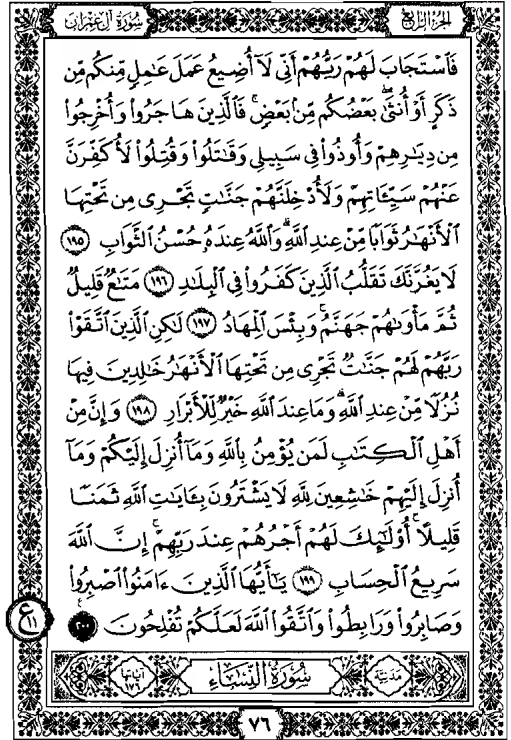 سُورَةُ آلِ عِمْرَان
الجُزْءُ الرَّابِعُ
فَٱسْتَجَابَ لَهُمْ رَبُّهُمْ أَنِّى لَآ أُضِيعُ عَمَلَ عَٰمِلٍ مِّنكُم مِّن
ذَكَرٍ أَوْ أُنثَىٰ ۖ بَعْضُكُم مِّنۢ بَعْضٍ ۖ فَٱلَّذِينَ هَاجَرُوا۟ وَأُخْرِجُوا۟
مِن دِيَٰرِهِمْ وَأُوذُوا۟ فِى سَبِيلِى وَقَٰتَلُوا۟ وَقُتِلُوا۟ لَأُكَفِّرَنَّ
عَنْهُمْ سَيِّـَٔاتِهِمْ وَلَأُدْخِلَنَّهُمْ جَنَّٰتٍ تَجْرِى مِن تَحْتِهَا
ٱلْأَنْهَٰرُ ثَوَابًا مِّنْ عِندِ ٱللَّهِ ۗ وَٱللَّهُ عِندَهُۥ حُسْنُ ٱلثَّوَابِ ١٩٥
لَا يَغُرَّنَّكَ تَقَلُّبُ ٱلَّذِينَ كَفَرُوا۟ فِى ٱلْبِلَٰدِ ١٩٦ مَتَٰعٌ قَلِيلٌ
ثُمَّ مَأْوَىٰهُمْ جَهَنَّمُ ۚ وَبِئْسَ ٱلْمِهَادُ ١٩٧ لَٰكِنِ ٱلَّذِينَ ٱتَّقَوْا۟
رَبَّهُمْ لَهُمْ جَنَّٰتٌ تَجْرِى مِن تَحْتِهَا ٱلْأَنْهَٰرُ خَٰلِدِينَ فِيهَا
نُزُلًا مِّنْ عِندِ ٱللَّهِ ۗ وَمَا عِندَ ٱللَّهِ خَيْرٌ لِّلْأَبْرَارِ ١٩٨ وَإِنَّ مِنْ
أَهْلِ ٱلْكِتَٰبِ لَمَن يُؤْمِنُ بِٱللَّهِ وَمَآ أُنزِلَ إِلَيْكُمْ وَمَآ
أُنزِلَ إِلَيْهِمْ خَٰشِعِينَ لِلَّهِ لَا يَشْتَرُونَ بِـَٔايَٰتِ ٱللَّهِ ثَمَنًا
قَلِيلًا ۗ أُو۟لَٰٓئِكَ لَهُمْ أَجْرُهُمْ عِندَ رَبِّهِمْ ۗ إِنَّ ٱللَّهَ
سَرِيعُ ٱلْحِسَابِ ١٩٩ يَٰٓأَيُّهَا ٱلَّذِينَ ءَامَنُوا۟ ٱصْبِرُوا۟
وَصَابِرُوا۟ وَرَابِطُوا۟ وَٱتَّقُوا۟ ٱللَّهَ لَعَلَّكُمْ تُفْلِحُونَ ٢٠٠
ع ١١
مَدَنِيَّة
سُورَةُ النِّسَاء
آيَاتُهَا ١٧٦
٧٦